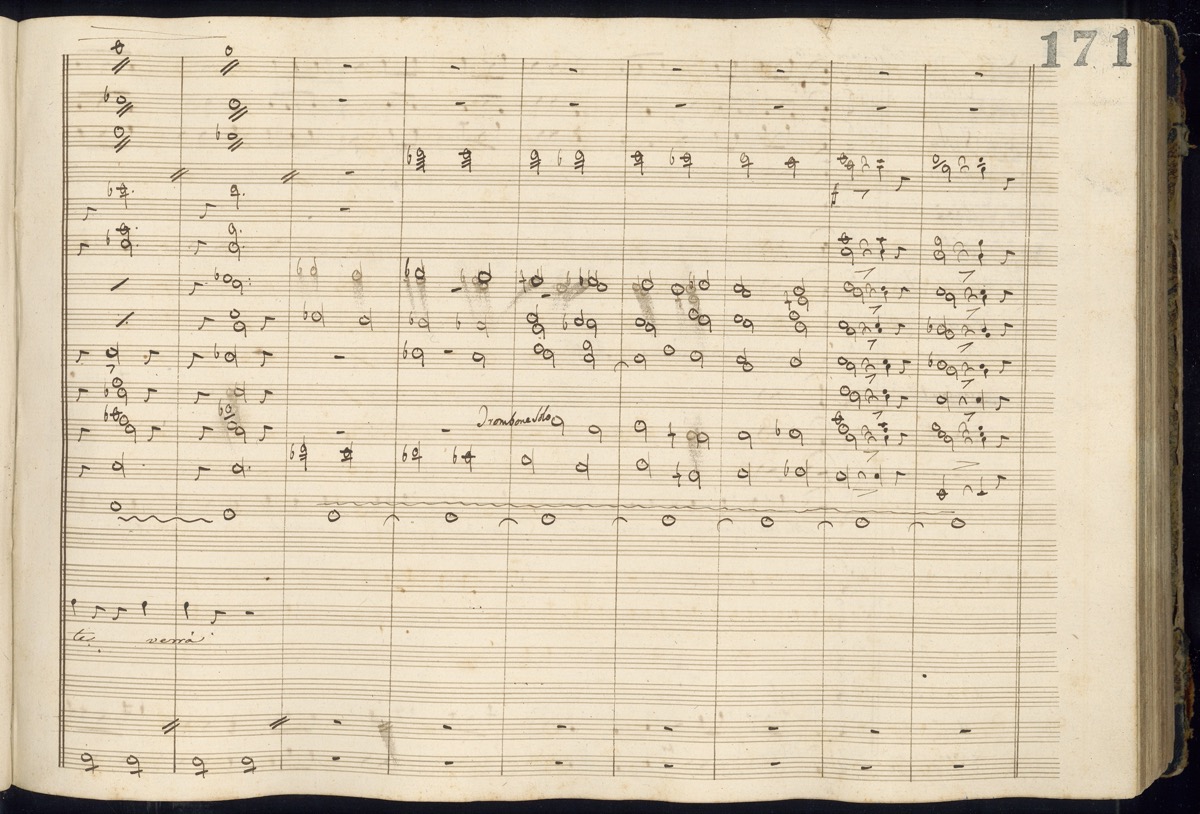 171
f
Trombone Solo
te verrà